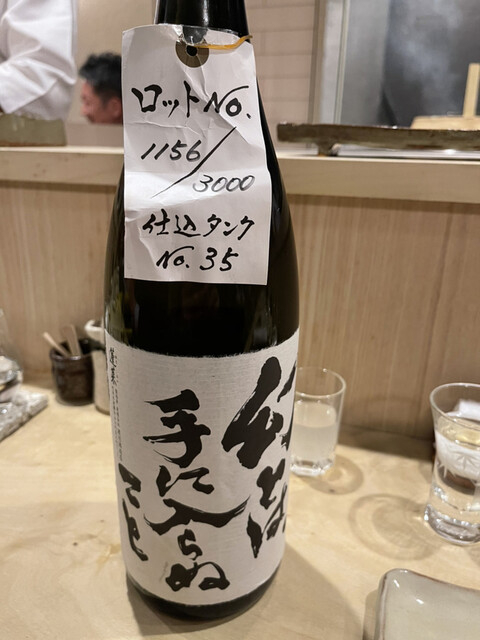 ロットNo.
1156/3000
仕込タンク
No.35
幻とは
手に入らぬ
こと